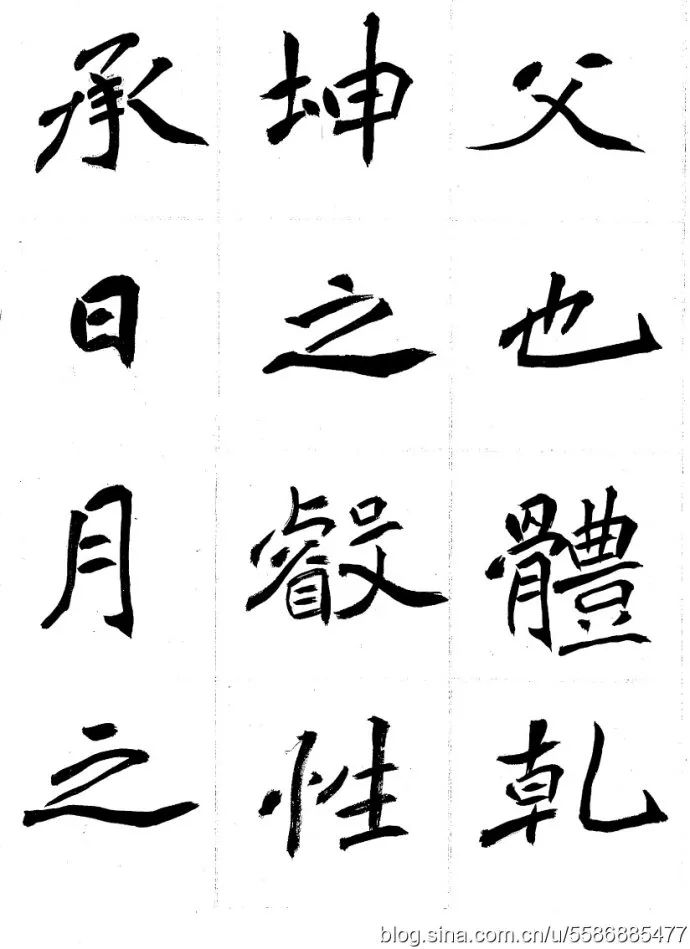 父也體乾
坤之叡性
承日月之
blog.sina.com.cn/u/5586885477